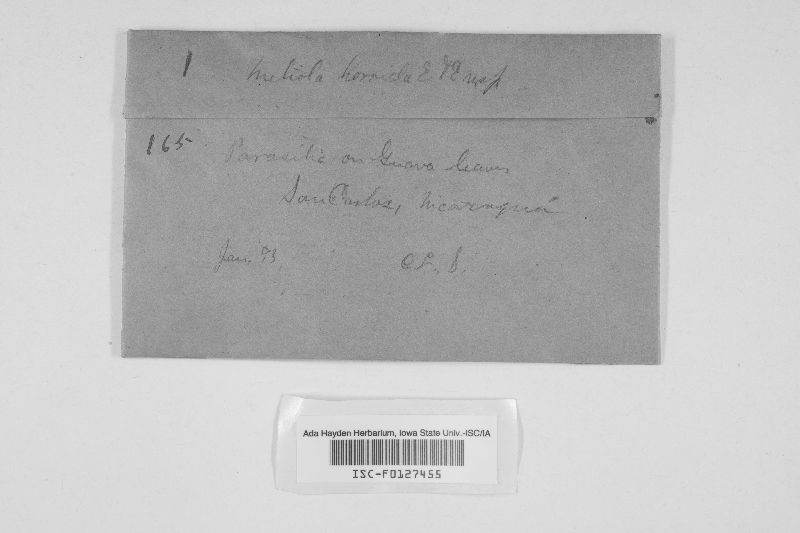 1 Meliola horrida E & E n. sp.
165 Parasitic on Guava leaves
San Carlos, Nicaragua
Jan. 93. C. L. S.
Ada Hayden Herbarium, Iowa State Univ.-ISC/IA
ISC-F0127455